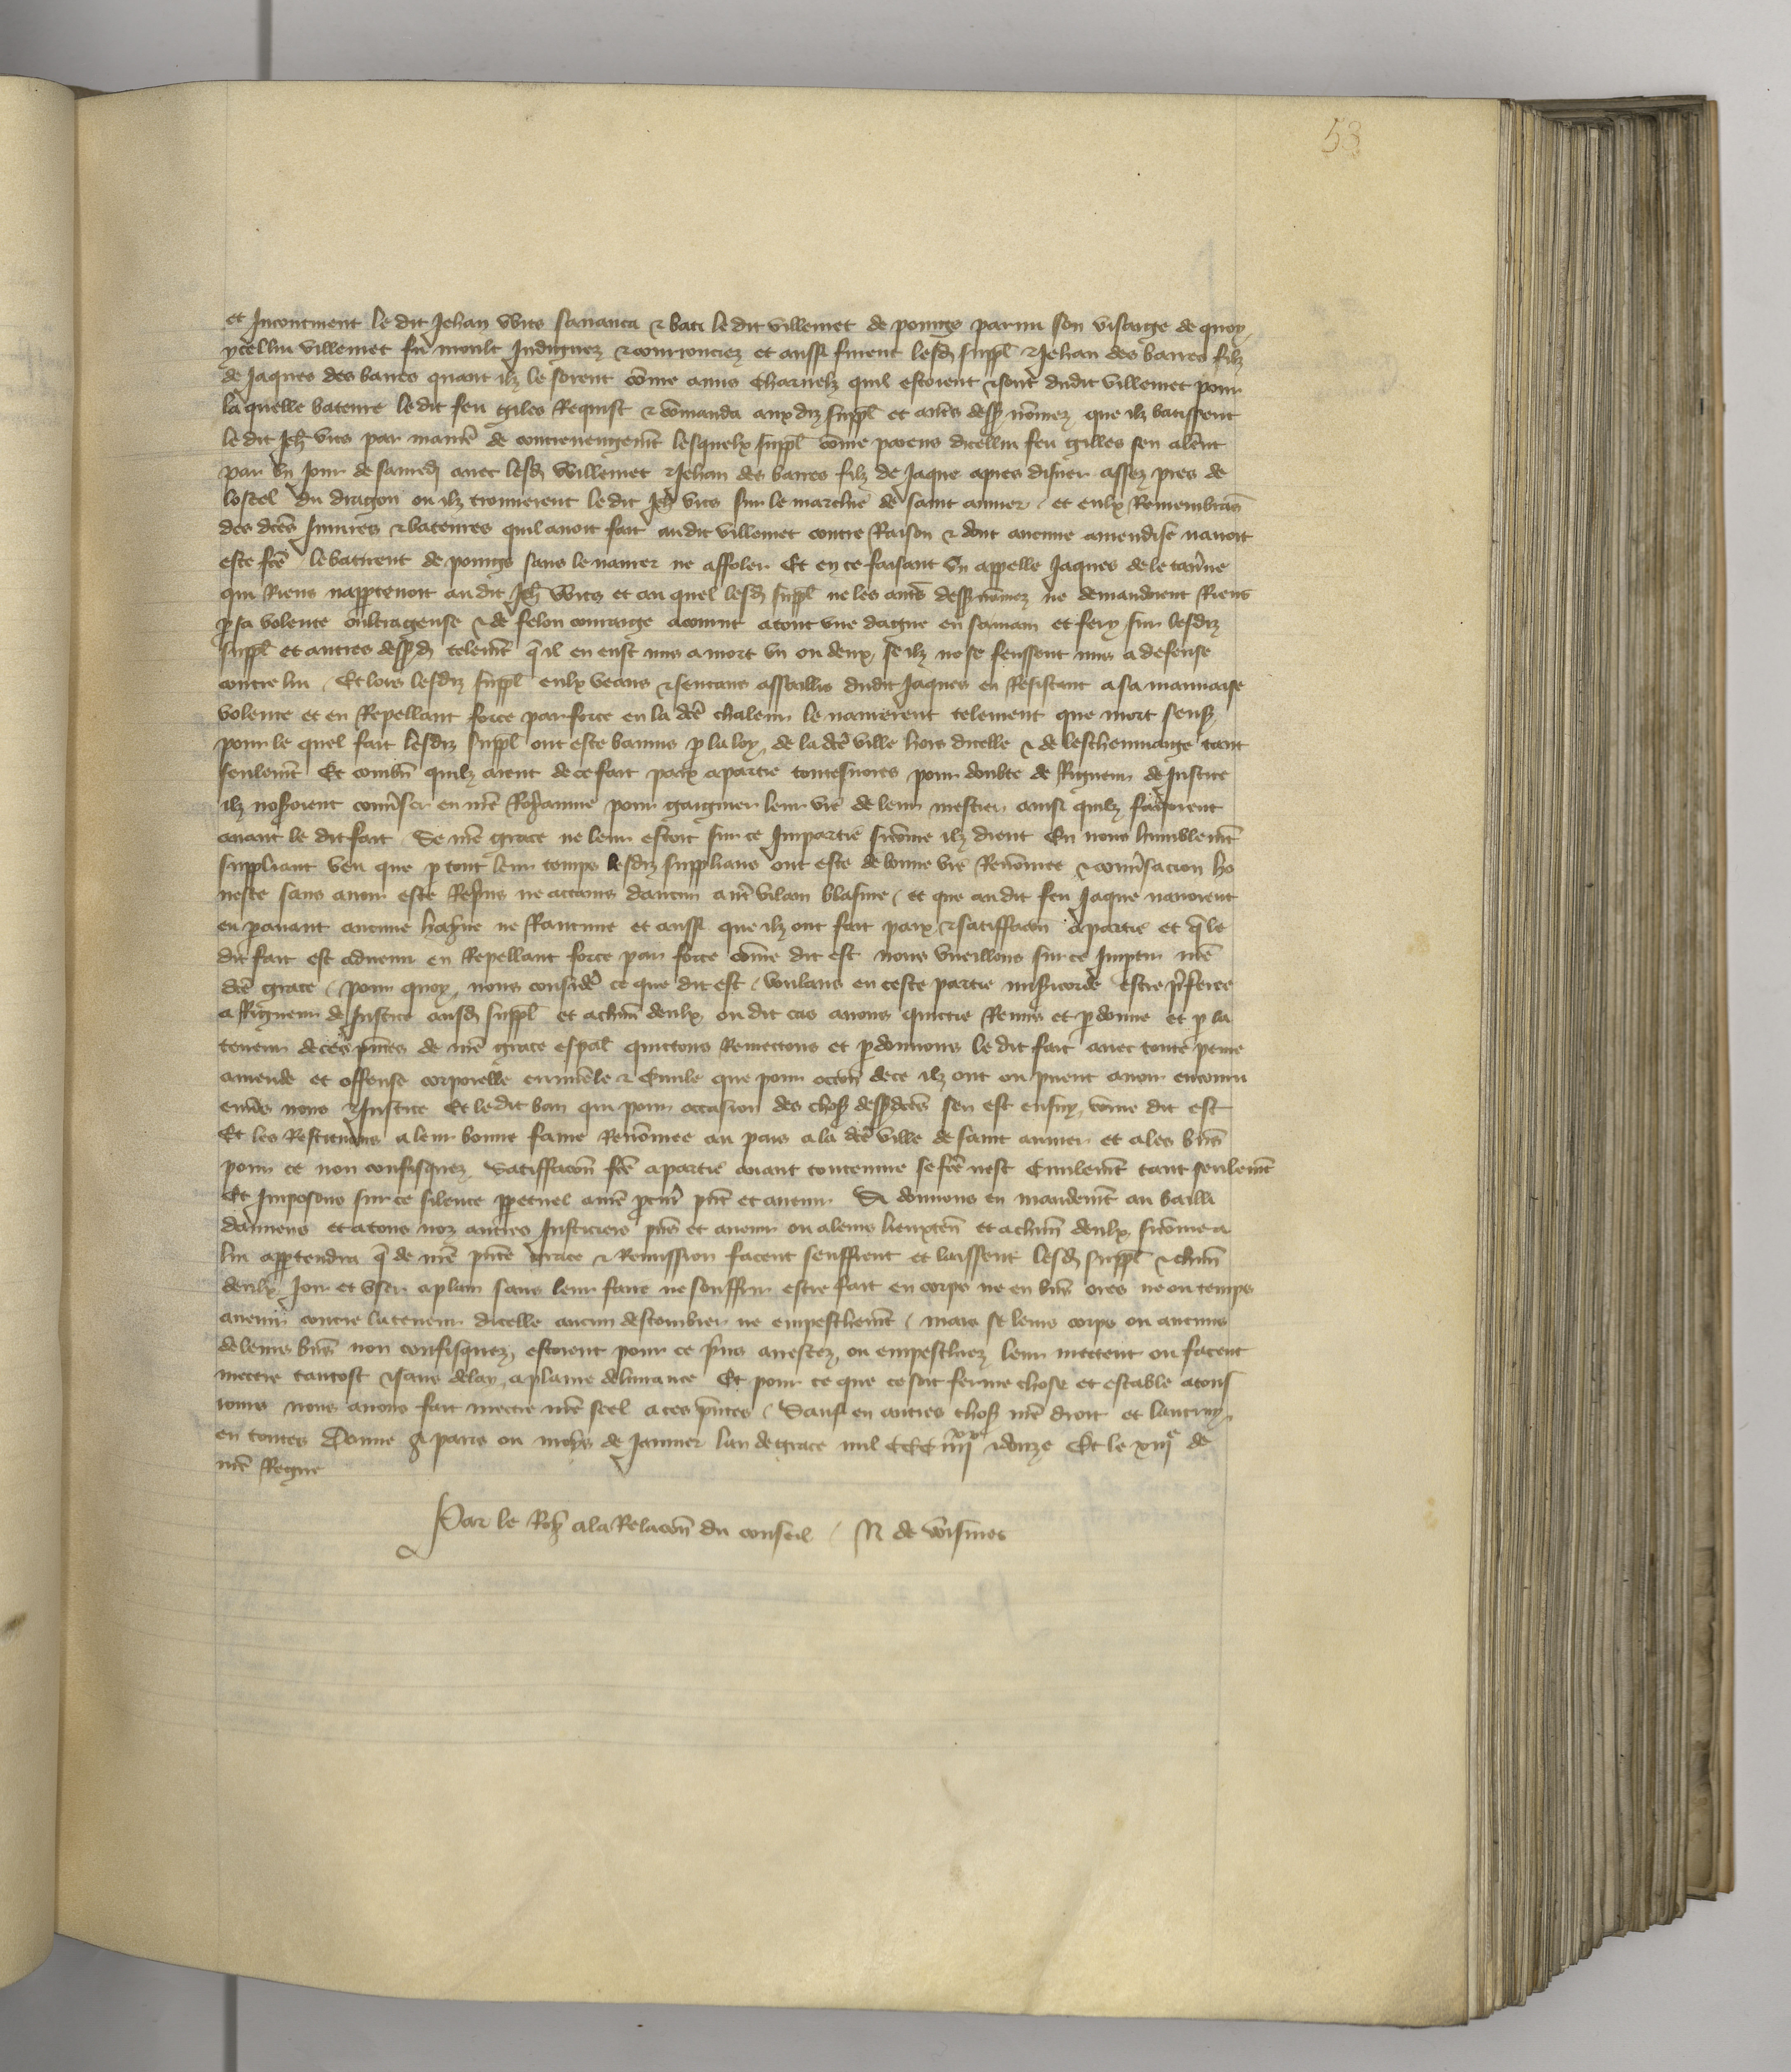 53
et Incontinent le dit Jehan Wits savanca & bati le dit Villemet de poings parmi son visaige de quoy
ycellui Villemet fu moult Indignez & courrouciez et aussi furent lesd suppl & Jehan des barres filz
de Jaques des barres quant ilz le sorent cōme amis charnelz quil estoient & sont dudit Villemet pour
la quelle bateure le dit feu Giles Requist & cōmanda aux diz suppl et aut̄s dess nōmez que ilz batissent
le dit Jeh Vits par manie de contrevengemt lesquelx suppl cōme parens dicellui feu Gilles sen alerent
par Un Jour de samedi avec lesd Willemet & Jehan des barres filz de Jaque apres disner assez pres de
lostel du dragon ou ilz trouverent le dit Jeh Vits sur le marchie de saint aumer / et eulx Remembrās
des dc̄es Iniures & bateures quil avoit fait audit Villemet contre Raison & dont aucune amendise navoit
este fc̄e le batirent de poings sans le navrer ne affoler Et en ce faisant Un appelle Jaques de le
qui Riens nappartenoit au dit Jeh Wits et au quel lesd suppl ne les aut̄s dess nōmez ne demandoient Riens
p sa volente oultrageuse & de felon couraige acourut a tout une dague en sa main et fery sur lesdiz
suppl et autres dessd telemt q̄ il en eust mis a mort un ou deux se ilz ne se feussent mis a defense
contre lui Et lors lesdiz suppl eulx veans & sentans assaillis dudit Jaques en Resistant a sa mauvaise
volente et en Repellant force par force en la dc̄e chaleur le navrerent telement que mort sensuy
pour le quel fait lesdiz suppl ont este bannis p la loy de la dc̄e ville hors dicelle & de leschevinaige tant
seulemt Et combn quilz aient de ce fait paix a partie toutesvoies pour doubte de Rigueur de Justice
ilz noseroient converser en nr̄e Royaume pour gaigner leur vie de leur mestier ainsi quilz faisoient
avant le dit fait Se nr̄e grace ne leur estoit sur ce Impartie sicōme ilz dient En nous humblemt
suppliant veu que p tout leur temps lesdiz supplians ont este de bonne vie Renōmee & conversacion ho
neste sans avoir este Repris ne attains daucun aut̄ vilain blasme / et que au dit feu Jaque navoient
en pavant aucune hayne ne Rancune et aussi que ilz ont fait paix & satiffacōn a partie et q̄ le
dit fait est advenu en Repellant force par force cōme dit est nous vueillons sur ce Impartir nr̄e
dc̄e grace / pour quoy nous considere ce que dit est / voulans en ceste partie misericorde estre preferee
a Rigueur de Justice ausd suppl et a chūn deulx ou dit cas avons quictie Remis et p donne et p la
teneur de ces pn̄tes de nr̄e grace espal quictons Remettons et p donnons le dit fait avec toute peine
amende et offense corporelle criminele & Civile que pour occōn de ce ilz ont ou puent avoir encouru
envs nous & Justice Et le dit ban qui pour occasion des chos dessdc̄es sen est ensuy cōme dit est
Et les Restituons a leur bonne fame Renōmee au pais a la dc̄e ville de saint aumer et a les bn̄s
pour ce non confisquez Satiffacōn fc̄e a partie avant toutevine se fc̄e nest Civilemt tant seulemt
Et Imposons sur ce silence ppetuel a nr̄e pcur pn̄t et avenir Si donnons en mandemt au bailli
damiens et a tous noz autres Justiciers pn̄s et avenir ou a leurs lieuxten et a chūn deulx sicōme a
lui appartendra q̄ de nr̄e pn̄te grace & Remission facent seuffrent et laissent lesd suppl & chūn
deulx Joir et user a plain sans leur faire ne souffrir estre fait en corps ne en bn̄s ores ne ou temps
avenir contre la teneur dicelle aucun destourbier ne empeschemt / mais se leurs corps ou aucuns
de leurs bn̄s non confisquez estoient pour ce pris arrestez ou empeschiez leur mettent ou facent
mettre tantost & sans delay a plaine delivrance Et pour ce que ce soit ferme chose et estable a tous
iours nous avons fait mettre nr̄e seel a ces pn̄tes / Sauf en autres chos nr̄e droit et lautruy
en toutes Donne a paris ou moys de Janvier lan de grace mil CCC iiiixx & donze Et le xiiie de
nr̄e Regne
Par le Roy a la Relacōn du conseil / N de Voisines